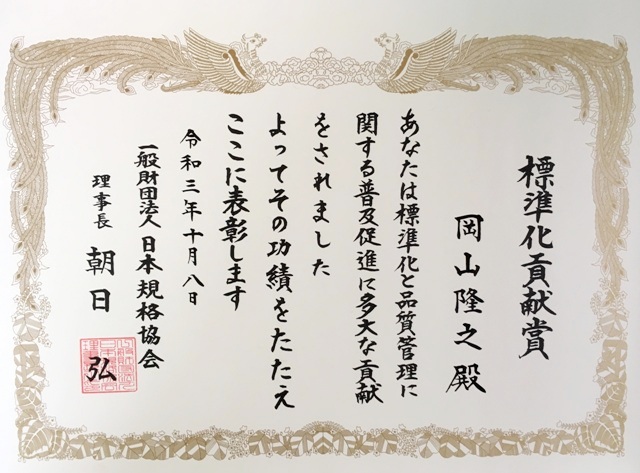 標準化貢献賞
岡山隆之殿
あなたは標準化と品質管理に
関する普及促進に多大な貢献
をされました
よってその功績をたたえ
ここに表彰します
令和三年十月八日
一般財団法人日本規格協会
理事長 朝日 弘